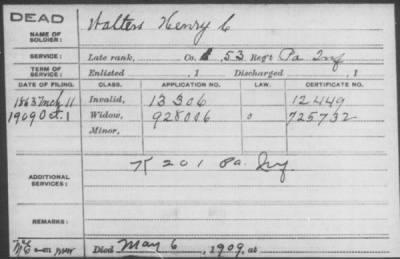 DEAD
NAME OF SOLDIER: Walters Henry C
SERVICE: Late rank, Co. 53 Reg't Pa Inf
TERM OF SERVICE: Enlisted , 1 Discharged , 1
DATE OF FILING. CLASS. APPLICATION NO. LAW. CERTIFICATE NO.
1863 Mch 11 Invalid, 13306 12449
1909 Oct. 1 Widow, 928006 725732
Minor,
ADDITIONAL SERVICES: K 201 Pa. Inf
REMARKS:
Died May 6, 1909, at